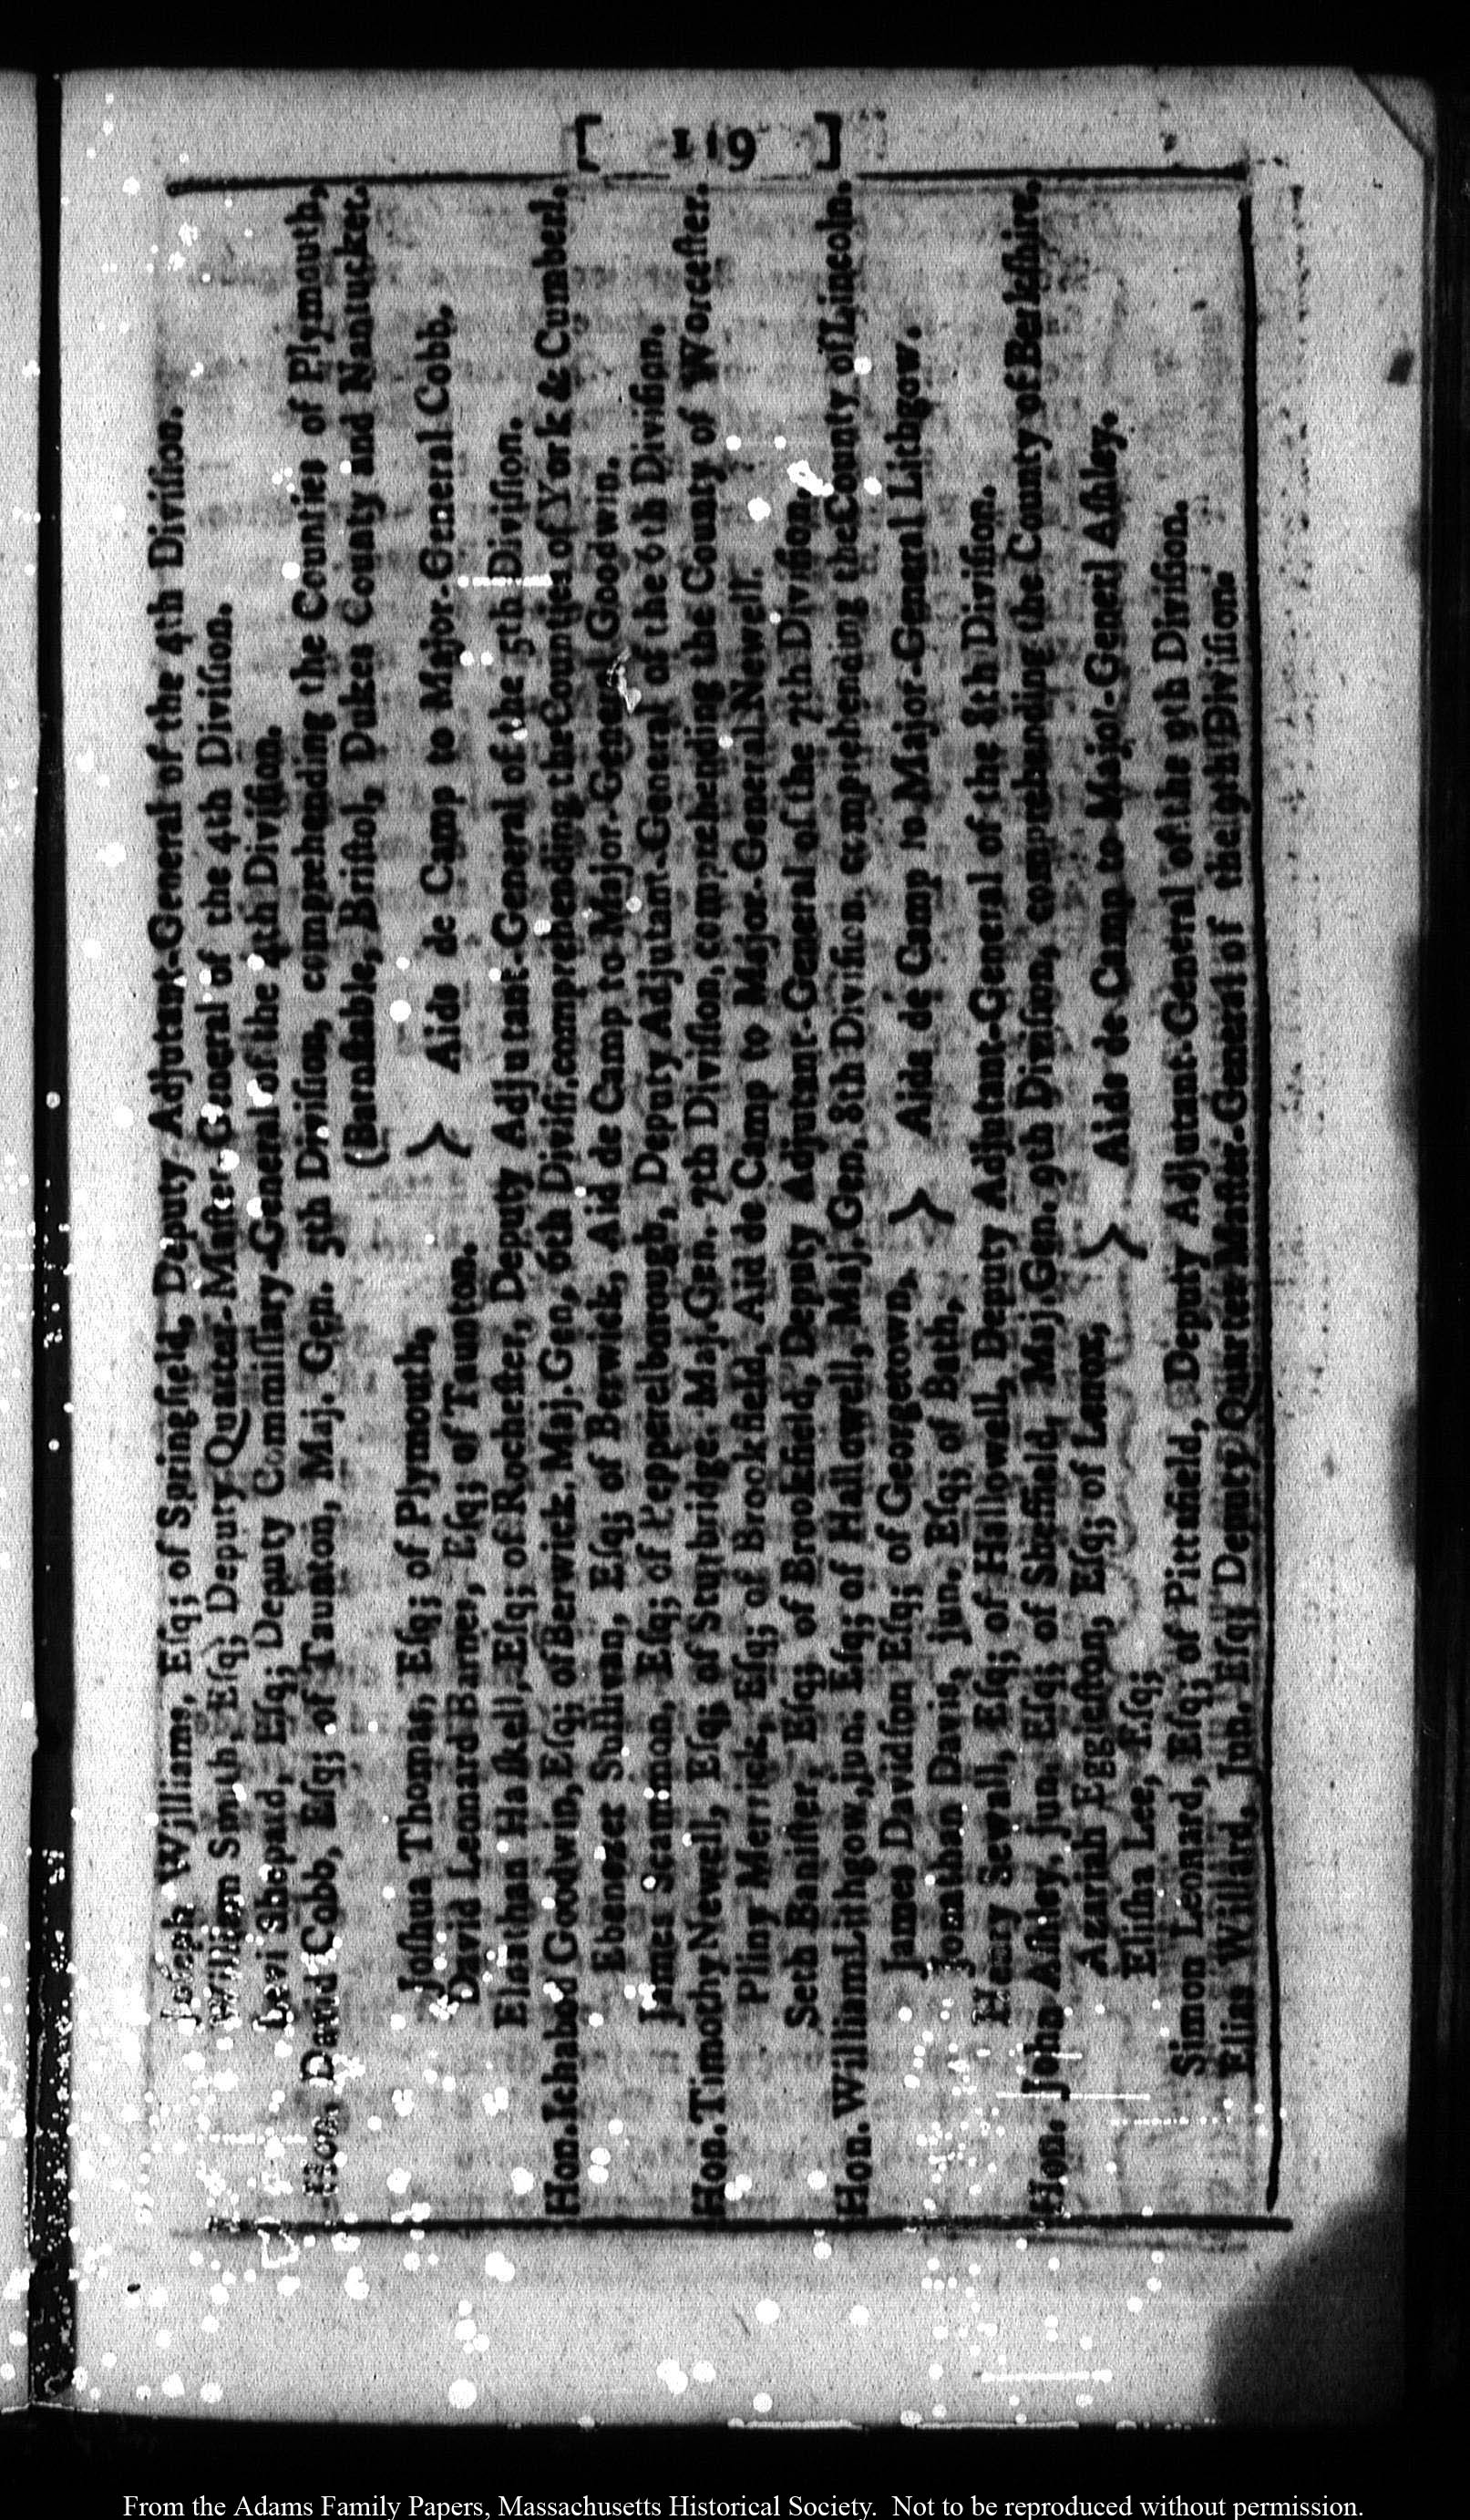 [ 119 ]
Joseph Williams, Eſq; of Springfield, Deputy Adjutant-General of the 4th Diviſion.
William Smith, Eſq; Deputy Quarter-Maſter-General of the 4th Diviſion.
Levi Shepard, Eſq; Deputy Commiſſary-General of the 4th Diviſion.
Hon. David Cobb, Eſq; of Taunton, Maj. Gen. 5th Diviſion, comprehending the Counties of Plymouth,
(Barnſtable, Briſtol, Dukes County and Nantucket.
Joſhua Thomas, Eſq; of Plymouth,
David Leonard Barnes, Eſq; of Taunton. } Aids de Camp to Major-General Cobb.
Elnathan Haſkell, Eſq; of Rocheſter, Deputy Adjutant-General of the 5th Diviſion.
Hon. Ichabod Goodwin, Eſq; of Berwick, Maj. Gen, 6th Diviſn. comprehending the Counties of York & Cumberl.
Ebenezer Sullivan, Eſq; of Berwick, Aid de Camp to Major-General Goodwin.
James Scammon, Eſq; of Pepperelborough, Deputy Adjutant-General of the 6th Diviſion.
Hon. Timothy Newell, Eſq; of Sturbridge. Maj. Gen. 7th Diviſion, comprehending the County of Worceſter.
Pliny Merrick, Eſq; of Brookfield, Aid de Camp to Major-General Newell.
Seth Baniſter, Eſq; of Brookfield, Deputy Adjutant-General of the 7th Diviſion.
Hon. William Lithgow, jun. Eſq; of Hallowell, Maj. Gen. 8th Diviſion, comprehending the County of Lincoln.
James Davidſon Eſq; of Georgetown,
Jonathan Davis, jun. Eſq; of Bath, } Aids de Camp to Major-General Lithgow.
Henry Sewall, Eſq; of Hallowell, Deputy Adjutant-General of the 8th Diviſion.
Hon. John Aſhley, jun. Eſq; of Sheffield, Maj. Gen. 9th Diviſion, comprehending the County of Berkſhire.
Azariah Eggleſton, Eſq; of Lenox,
Eliſha Lee, Eſq; } Aids de Camp to Major-Generl Aſhley.
Simon Leonard, Eſq; of Pittsfield, Deputy Adjutant-General of the 9th Diviſion.
Elias Willard, Jun. Eſq; Deputy Quarter-Maſter-General of the 9th Diviſion.
From the Adams Family Papers, Massachusetts Historical Society. Not to be reproduced without permission.